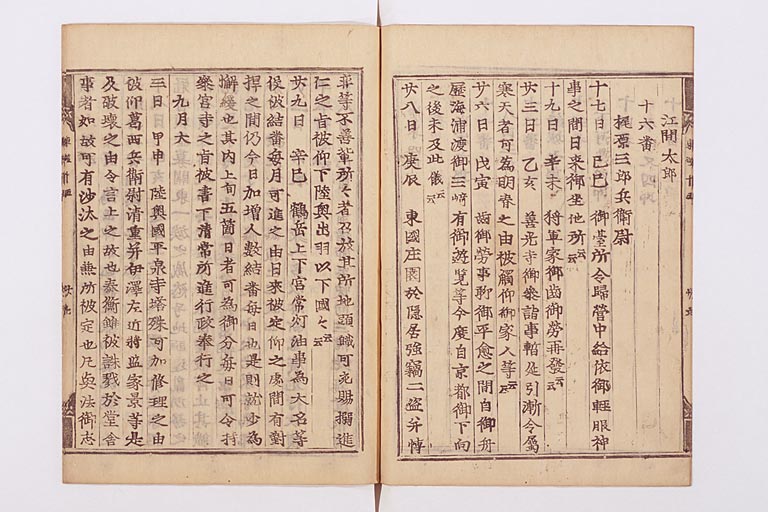 江間太郎
十六番
梶原三郎兵衛尉
十七日 己巳 御臺所令歸營中給依御輕服神
事之間日来御坐他所云云
十九日 辛未 将軍家御齒御勞再發云云
廿三日 乙亥 善光寺御参詣事暫延引漸令属
寒天者可為明春之由被觸仰御家人等云云
廿六日 戊寅 齒御勞事聊御平愈之間自御舟
歴海浦渡御三崎有御遊覧等今度自京都御下向
之後未及此儀云云
廿八日 庚辰 東國庄園於隠居強竊二盗并悖
等不善輩所々者召放其所地頭職可充賜搦進
仁之旨被仰下陸奥出羽以下國々云云
廿九日 辛巳 鶴岳上下宮常灯油事為大名等
役被結番毎月可進之由日来被定仰之處間有對
捍之間仍今日加増人數結番毎日也是則就少為
懈緩也其内上旬五箇日者可為御分毎日可令持
参宮寺之旨被書下清常所進行政奉行之
九月大
三日 甲申 陸奥國平泉寺塔殊可加修理之由
被仰葛西兵衛尉清重并伊澤左近将監家景等是
及破壊之由令言上之故也泰衡雖被誅戮於堂舎
事者如故可有沙汰之由兼所被定也凡興法御志